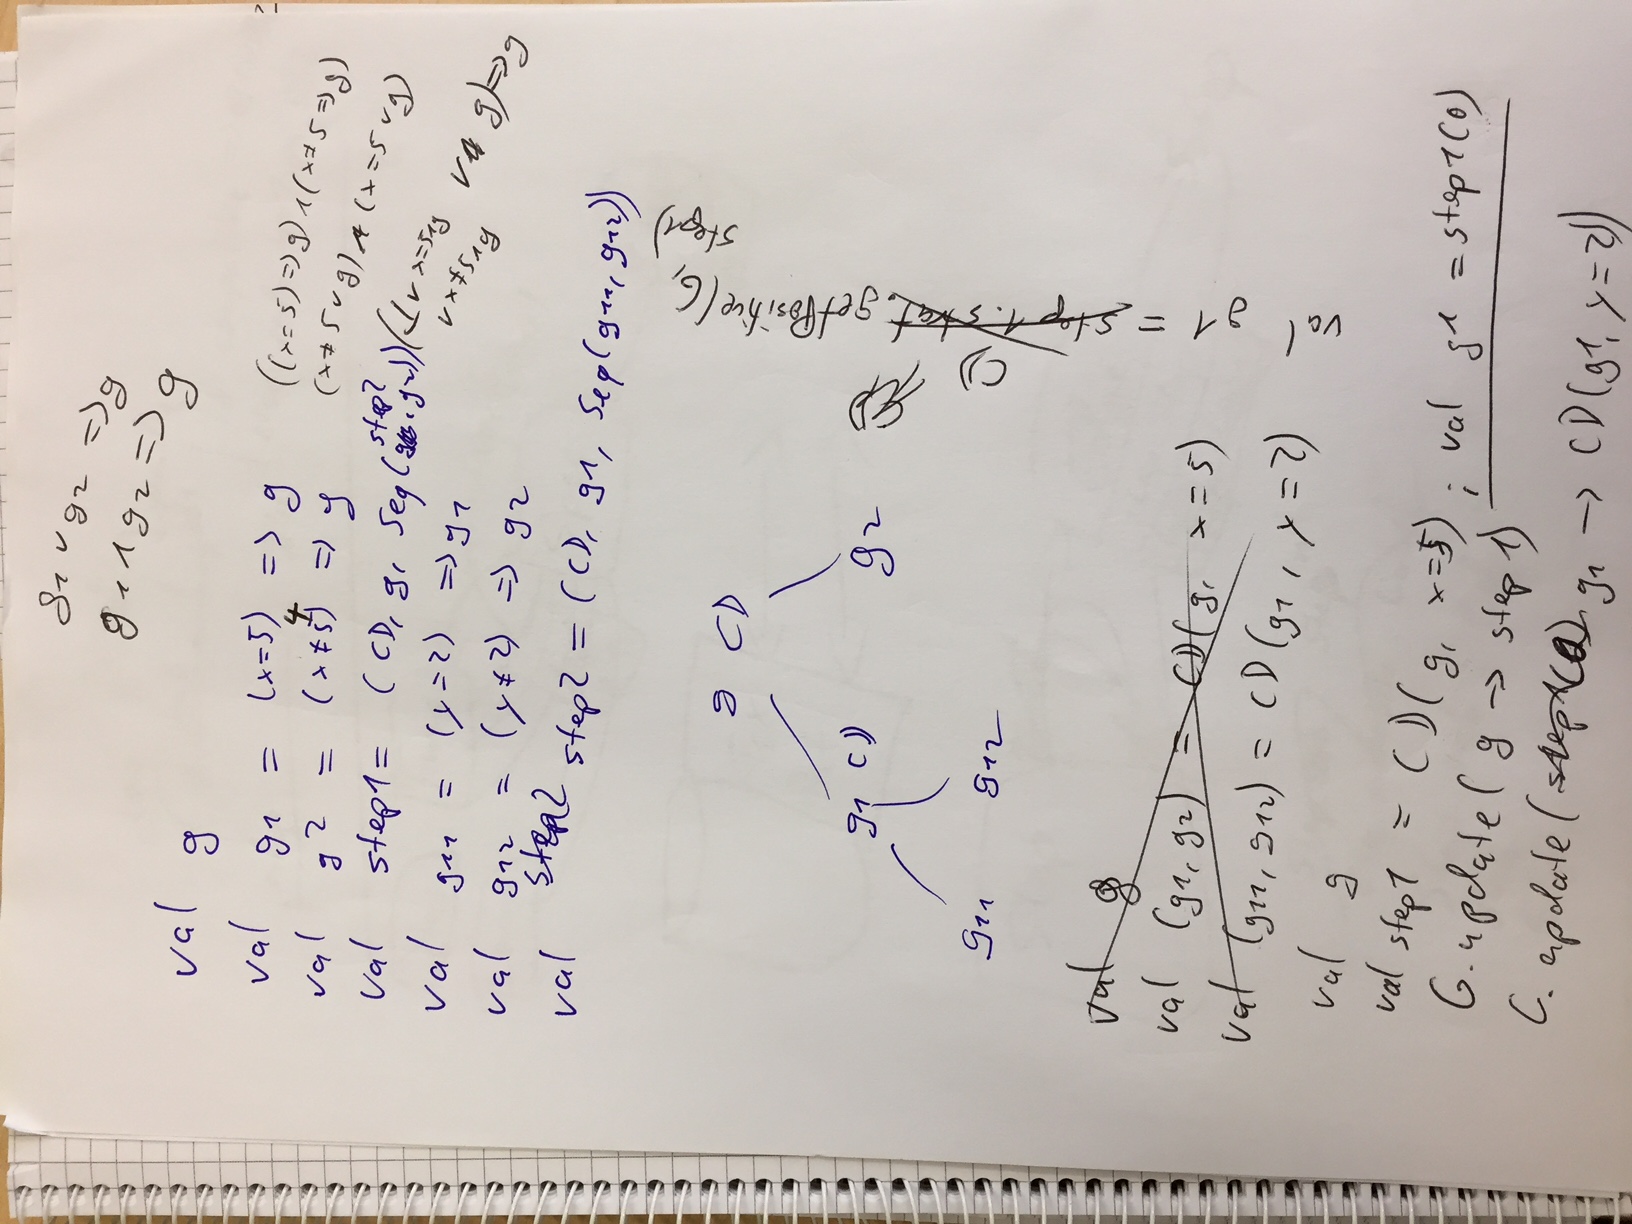 g1 ∨ g2 => g
g1 ∧ g2 => g
val g
val g1 = (x=5) => g
val g2 = (x≠5) => g
4
((x=5)=>g) ∧ (x≠5=>g)
(x≠5 ∨ g) ∧ (x=5 ∨ g)
val step1 = (CD, g, Seq(step2, g2))
(⊥ ∨ x=5∧g
∨ x≠5∧g
∨ g)=>g
val g11 = (y=2) => g1
val g12 = (y≠2) => g2
val step2 step2 = (CD, g1, Seq(g11, g12))
g CD
g1 CD
g2
g11 g12
CD
val g1 = step1.strat.getPositive(G,
step1)
val g
val (g1, g2) = CD(g, x=5)
val (g11, g12) = CD(g1, y=2)
val g
val step1 = CD(g, x=5) ; val g1 = step1(0)
G.update(g -> step1)
G.update(step1(0) g1 -> CD(g1, y=2))